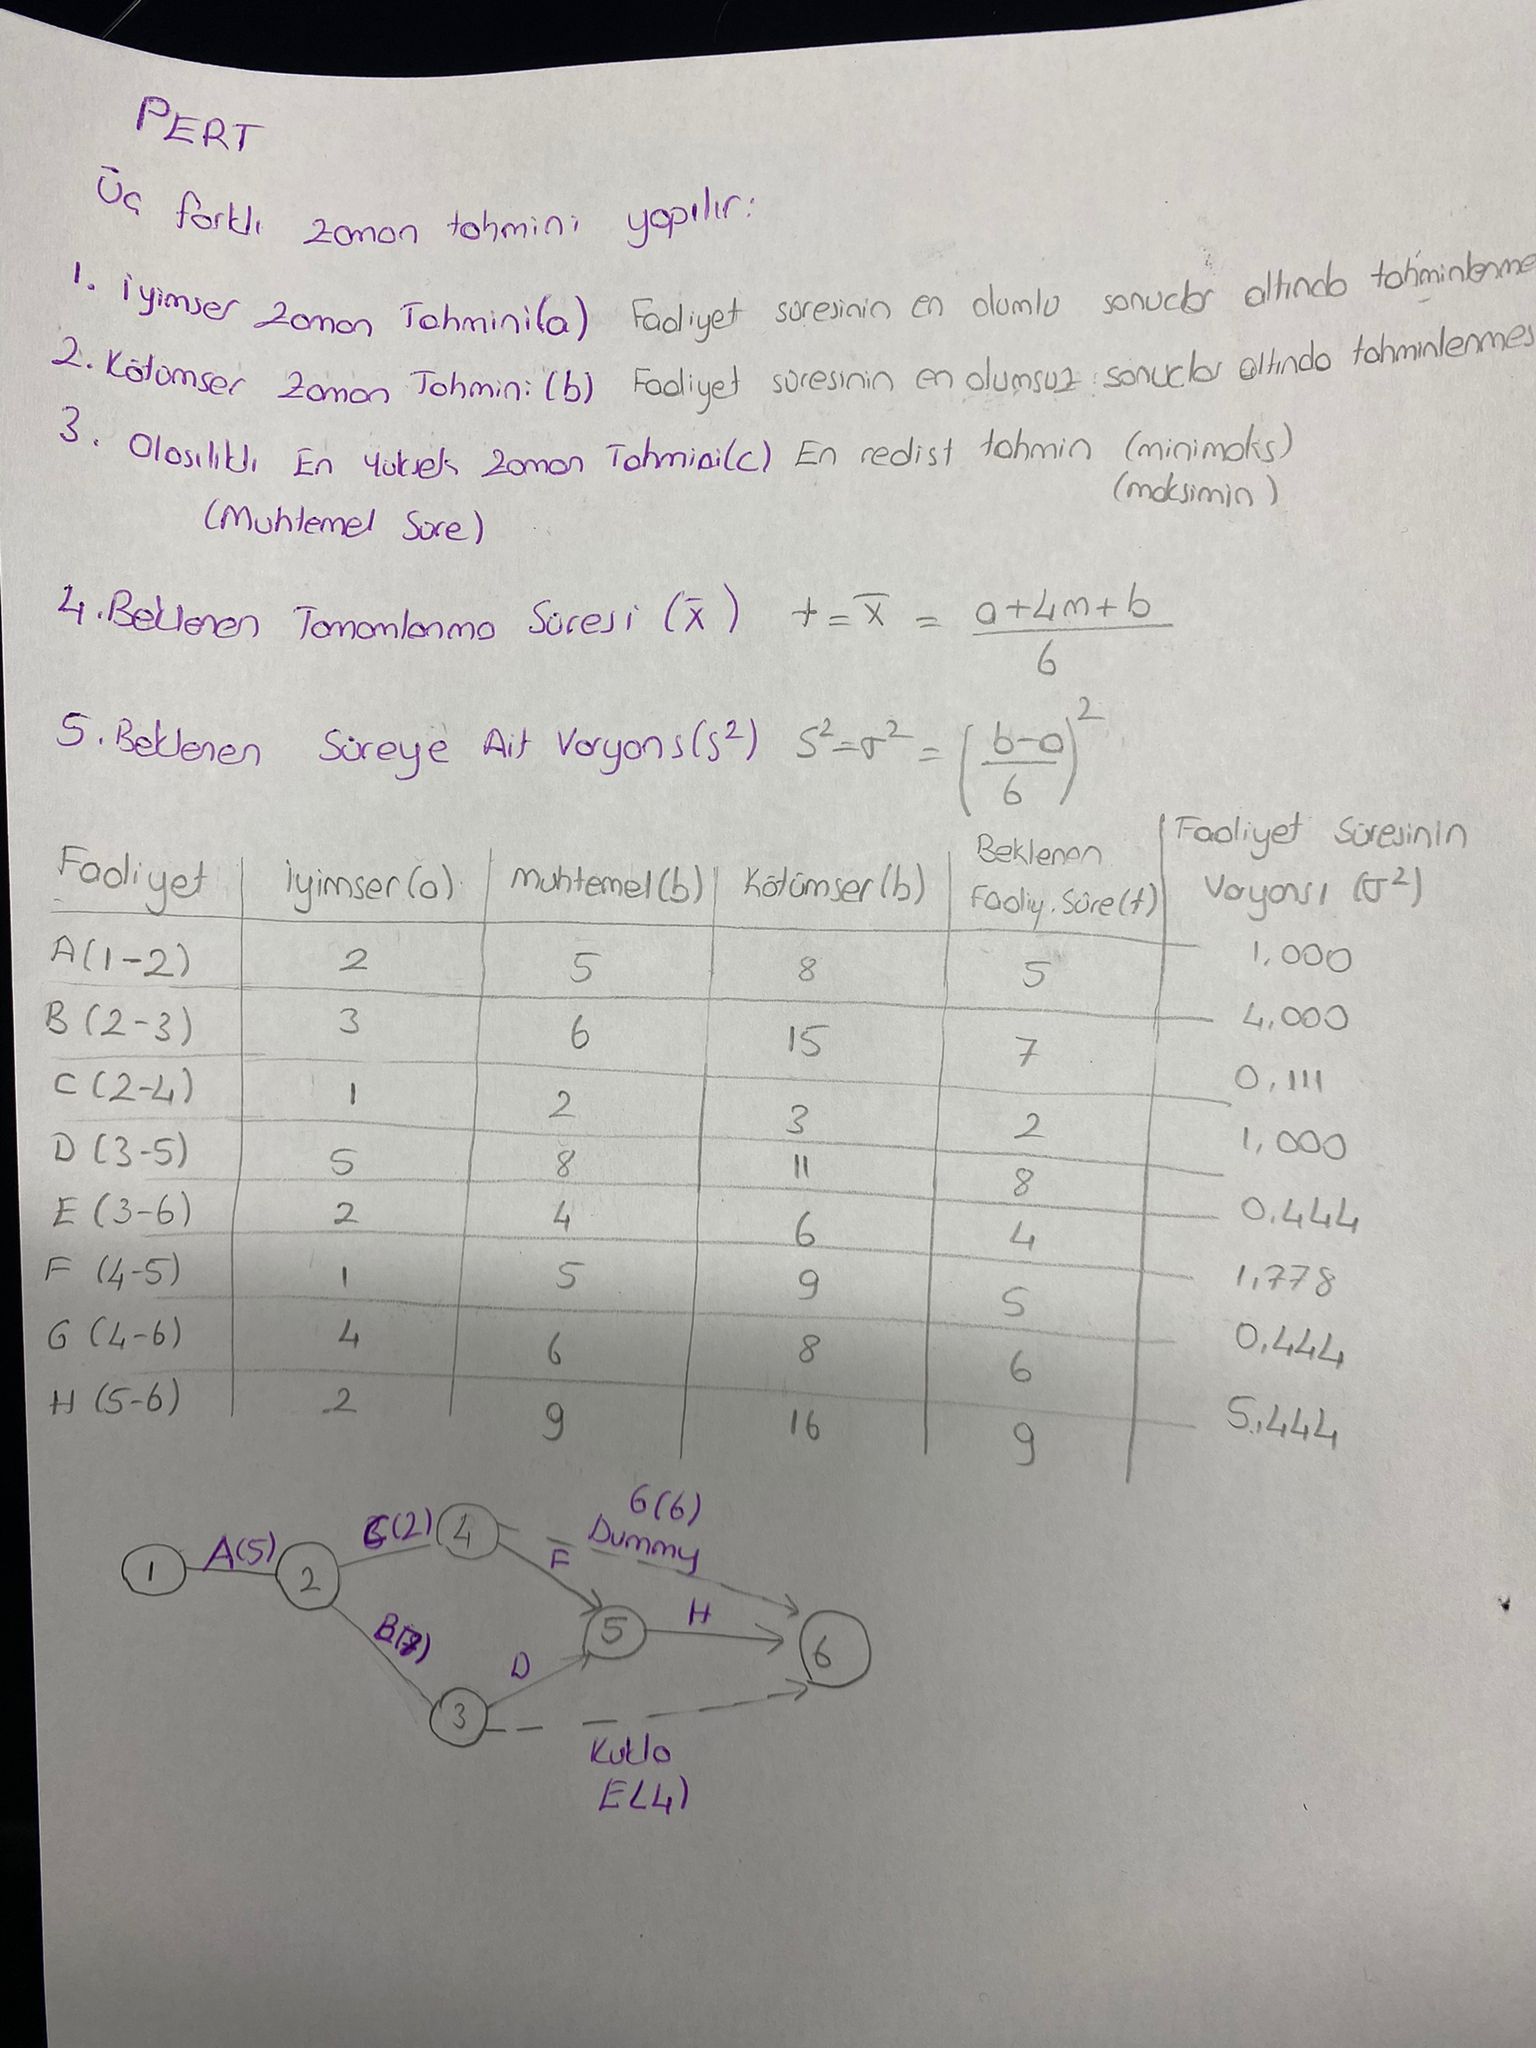 PERT
Üç farklı zaman tahmini yapılır:
1. İyimser Zaman Tahmini(a) Faaliyet süresinin en olumlu sonuclar altında tahminlenme
2. Kötümser Zaman Tahmini(b) Faaliyet süresinin en olumsuz sonuclar altında tahminlenmes
3. Olasılıklı En Yüksek Zaman Tahmini(c) En redist tahmin (minimaks)
(Muhtemel Süre) (maksimin)
4. Beklenen Tamamlanma Süresi (x̄) t = x̄ = (a+4m+b)/6
5. Beklenen Süreye Ait Varyans(s²) S² = σ² = ((b-a)/6)²
Faaliyet | İyimser(a) | muhtemel(b) | Kötümser(b) | Beklenen Faaliy. Süre(t) | Faaliyet Süresinin Varyansı (σ²)
A(1-2) 2 5 8 5 1,000
B(2-3) 3 6 15 7 4,000
C(2-4) 1 2 3 2 0,111
D(3-5) 5 8 11 8 1,000
E(3-6) 2 4 6 4 0.444
F(4-5) 1 5 9 5 1,778
G(4-6) 4 6 8 6 0.444
H(5-6) 2 9 16 9 5.444
G(6)
Dummy
1 A(5) 2 C(2) 4 F
B(7) 3 D 5 H 6
Kukla
E(4)